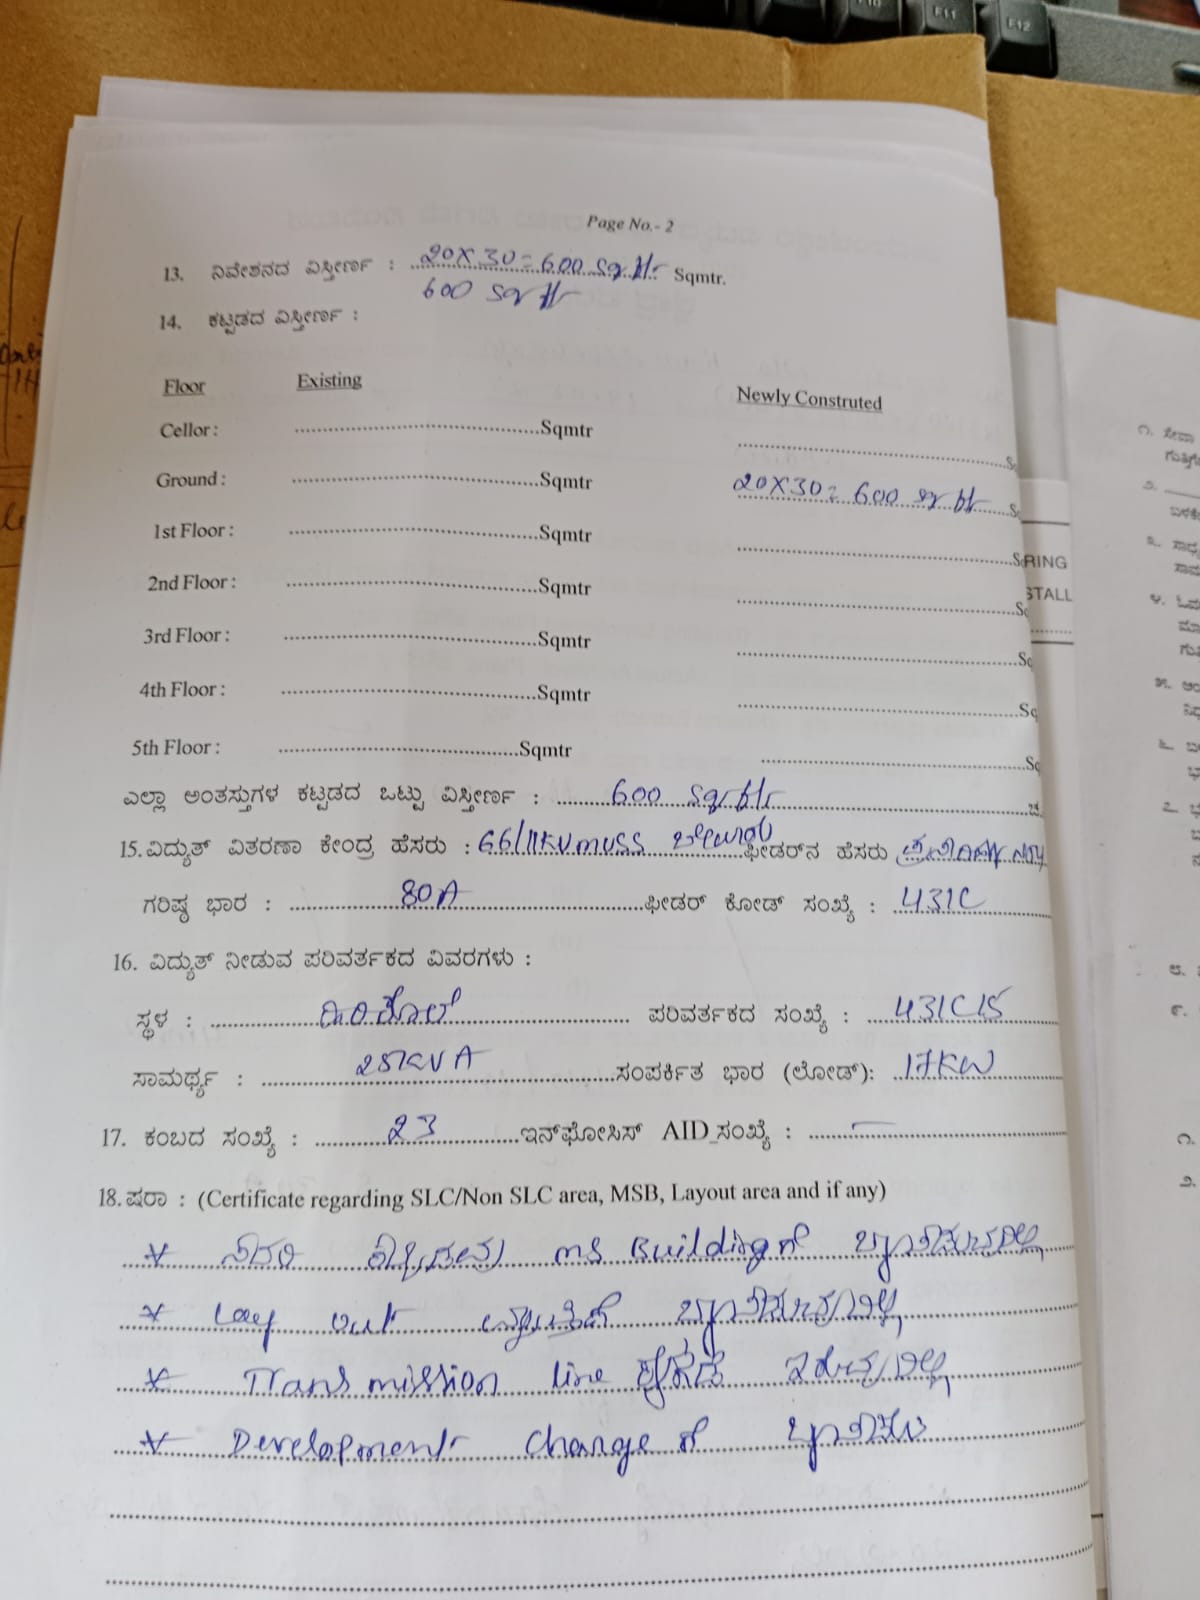 Page No.- 2
13. ನಿವೇಶನದ ವಿಸ್ತೀರ್ಣ : 20X30=600 Sq ftr Sqmtr.
600 Sq ftr
14. ಕಟ್ಟಡದ ವಿಸ್ತೀರ್ಣ :
Floor Existing Newly Constructed
Cellor : Sqmtr
Ground : Sqmtr 20X30= 600 Sq ftr
1st Floor : Sqmtr
2nd Floor : Sqmtr
3rd Floor : Sqmtr
4th Floor : Sqmtr
5th Floor : Sqmtr
ಎಲ್ಲಾ ಅಂತಸ್ತುಗಳ ಕಟ್ಟಡದ ಒಟ್ಟು ವಿಸ್ತೀರ್ಣ : 600 Sq ftr
15. ವಿದ್ಯುತ್ ವಿತರಣಾ ಕೇಂದ್ರ ಹೆಸರು : 66/11KV MUSS ಫೀಡರ್‌ನ ಹೆಸರು
ಗರಿಷ್ಠ ಭಾರ : 80A ಫೀಡರ್ ಕೋಡ್ ಸಂಖ್ಯೆ : 431C
16. ವಿದ್ಯುತ್ ನೀಡುವ ಪರಿವರ್ತಕದ ವಿವರಗಳು :
ಸ್ಥಳ : ಪರಿವರ್ತಕದ ಸಂಖ್ಯೆ : 431C15
ಸಾಮರ್ಥ್ಯ : 25KVA ಸಂಪರ್ಕಿತ ಭಾರ (ಲೋಡ್): 17KW
17. ಕಂಬದ ಸಂಖ್ಯೆ : 23 ಇನ್‌ಫೋಸಿಸ್ AID_ಸಂಖ್ಯೆ : —
18. ಷರಾ : (Certificate regarding SLC/Non SLC area, MSB, Layout area and if any)
* ಸದರಿ ms Building ಗೆ
* Lay out
* Transmission line ಇರುವುದಿಲ್ಲ
* Development Change ಗೆ
RING
STALL